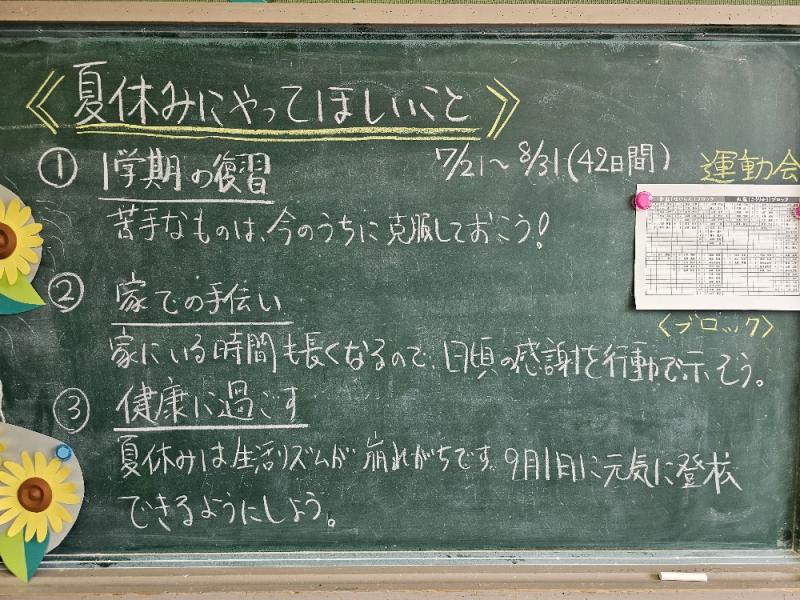 《夏休みにやってほしいこと》
① 1学期の復習
7/21〜8/31(42日間)
運動会
苦手なものは、今のうちに克服しておこう!
② 家での手伝い
〈ブロック〉
家にいる時間も長くなるので、日頃の感謝を行動で示そう。
③ 健康に過ごす
夏休みは生活リズムが崩れがちです。9月1日に元気に登校
できるようにしよう。